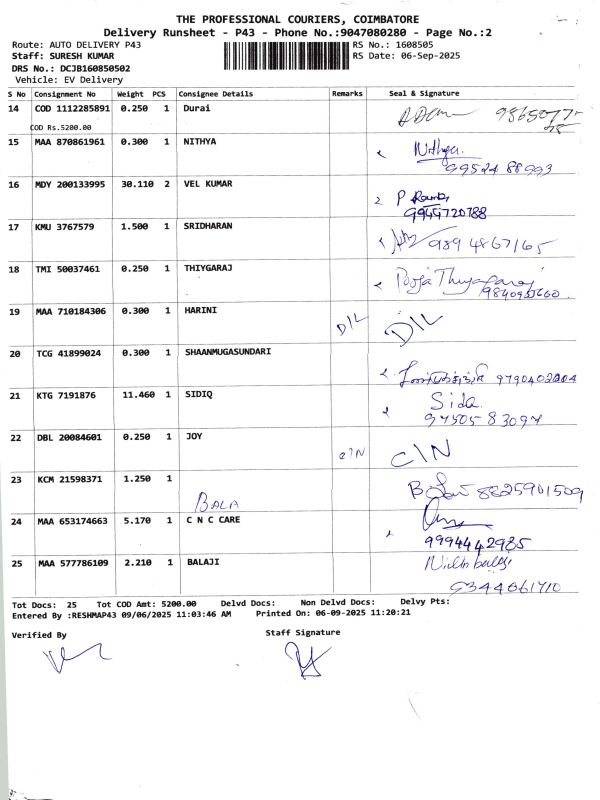 THE PROFESSIONAL COURIERS, COIMBATORE
Delivery Runsheet - P43 - Phone No.:9047080280 - Page No.:2
Route: AUTO DELIVERY P43 RS No.: 1608505
Staff: SURESH KUMAR RS Date: 06-Sep-2025
DRS No.: DCJB160850502
Vehicle: EV Delivery
S No Consignment No Weight PCS Consignee Details Remarks Seal & Signature
14 COD 1112285891 0.250 1 Durai
COD Rs.5200.00
15 MAA 870861961 0.300 1 NITHYA Nithya.
99524 88993
16 MDY 200133995 30.110 2 VEL KUMAR
9944720788
17 KMU 3767579 1.500 1 SRIDHARAN 989 4867165
18 TMI 50037461 0.250 1 THIYGARAJ Pooja Thiyagaraj
19 MAA 710184306 0.300 1 HARINI D/L D/L
20 TCG 41899024 0.300 1 SHAANMUGASUNDARI 9790402004
21 KTG 7191876 11.460 1 SIDIQ Sida.
97505 83094
22 DBL 20084601 0.250 1 JOY C/N C/N
23 KCM 21598371 1.250 1 BALA 8825901509
24 MAA 653174663 5.170 1 C N C CARE
9994442985
25 MAA 577786109 2.210 1 BALAJI
9344061710
Tot Docs: 25 Tot COD Amt: 5200.00 Delvd Docs: Non Delvd Docs: Delvy Pts:
Entered By :RESHMAP43 09/06/2025 11:03:46 AM Printed On: 06-09-2025 11:20:21
Verified By Staff Signature